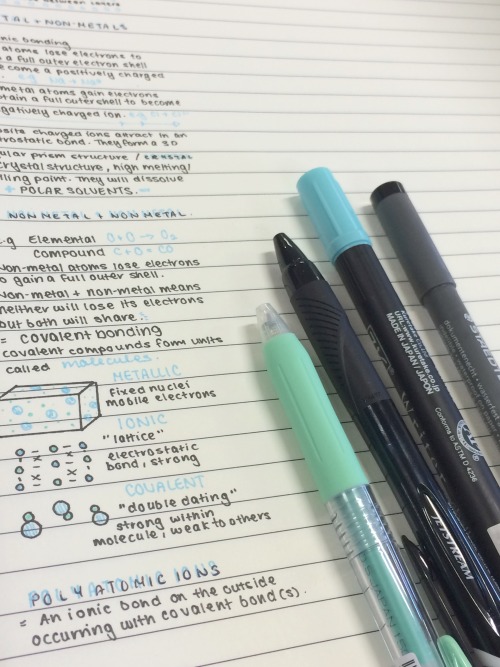 TAL + NON-METALS
nic bonding
atoms lose electrons to
a full outer electron shell
ecome a positively charged
metal atoms gain electrons
tain a full outer shell to become
gatively charged ion.
osite charged ions attract in an
trostatic bond. They form a 3D
ular prism structure / CRYSTAL
crystal structure, high melting/
lling point. They will dissolve
+ POLAR SOLVENTS.
NON METAL + NON METAL.
e.g Elemental O+O → O₂
Compound C+O = CO
Non-metal atoms lose electrons
o gain a full outer shell.
Non-metal + non-metal means
neither will lose its electrons
but both will share.
= covalent bonding
covalent compounds form units
called molecules.
METALLIC
fixed nuclei
mobile electrons
IONIC
"lattice"
electrostatic
bond, strong
COVALENT
"double dating"
strong within
molecule, weak to others
POLYATOMIC IONS
= An ionic bond on the outside
occurring with covalent bond(s).
URL:www.kuretake.co.jp
MADE IN JAPAN/JAPON
Conforms to ASTM D 4236
JETSTREAM